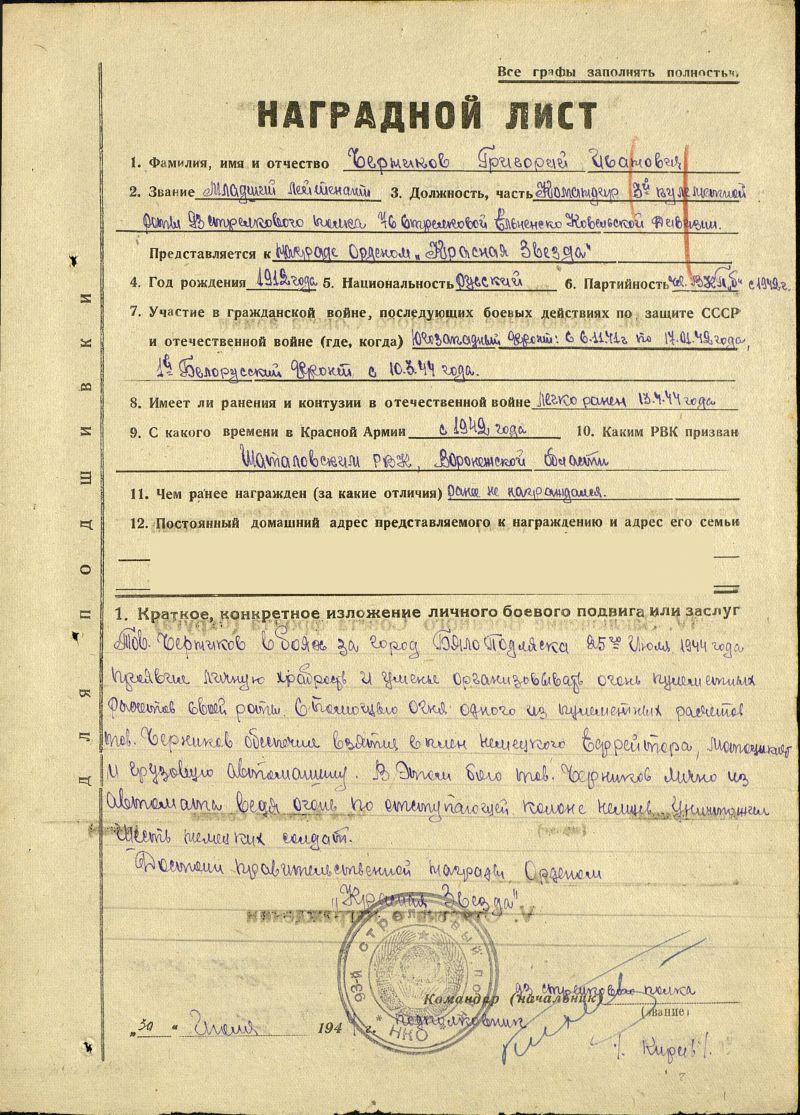 Все графы заполнять полностью
НАГРАДНОЙ ЛИСТ
1. Фамилия, имя и отчество Черников Григорий Иванович
2. Звание Младший лейтенант 3. Должность, часть Командир 3й пулеметной
роты 93 стрелкового полка 76 стрелковой Ельненско Ковельской дивизии.
Представляется к награде Орденом „Красная Звезда"
4. Год рождения 1912 года 5. Национальность Русский 6. Партийность чл. ВКП(б) с 1942 г.
7. Участие в гражданской войне, последующих боевых действиях по защите СССР
и отечественной войне (где, когда) Югозападный фронт: с 6.11.41г по 17.01.42 года,
1й Белорусский фронт с 10.3.44 года.
8. Имеет ли ранения и контузии в отечественной войне легко ранен 13.4.44 года
9. С какого времени в Красной Армии с 1942 года 10. Каким РВК призван
Шаталовским РВК, Воронежской области
11. Чем ранее награжден (за какие отличия) ранее не награждался.
12. Постоянный домашний адрес представляемого к награждению и адрес его семьи
1. Краткое, конкретное изложение личного боевого подвига или заслуг
Тов. Черников в боях за город Бяло Подляска 25го Июля 1944 года
проявил личную храбрость и уменье организовывать огонь пулеметных
расчетов своей роты. С помощью огня одного из пулеметных расчетов
тов. Черников обеспечил взятие в плен немецкого Ефрейтора, Мотоциклет
и грузовую автомашину. В этом бою тов. Черников лично из
Автомата ведя огонь по отступающей колоне немцев уничтожил
шесть немецких солдат.
Достоин правительственной награды Орденом
„Красная Звезда"
93-й стрелковый полк * НКО *
93 стрелкового полка
Командир (начальник)
подполковник
(звание)
„30" Июля 1944 г.
/Киреев/
ДЛЯ ПОДШИВКИ